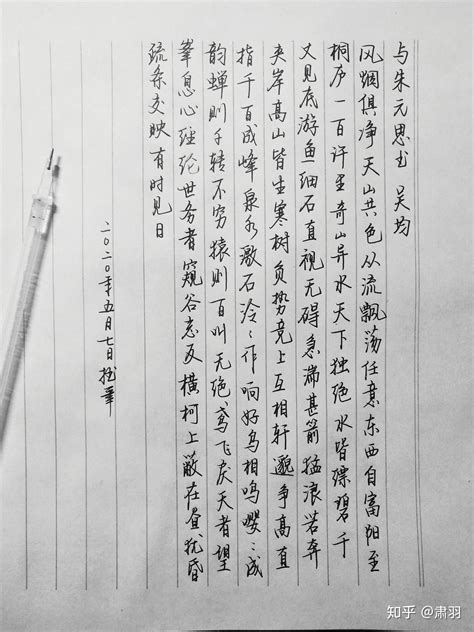 与朱元思书 吴均
风烟俱净天山共色从流飘荡任意东西自富阳至
桐庐一百许里奇山异水天下独绝水皆缥碧千
丈见底游鱼细石直视无碍急湍甚箭猛浪若奔
夹岸高山皆生寒树负势竞上互相轩邈争高直
指千百成峰泉水激石泠〻作响好鸟相鸣嘤〻成
韵蝉则千转不穷猿则百叫无绝鸢飞戾天者望
峯息心经纶世务者窥谷忘反横柯上蔽在昼犹昏
疏条交映有时见日
二〇二〇年五月七日
知乎 @肃羽